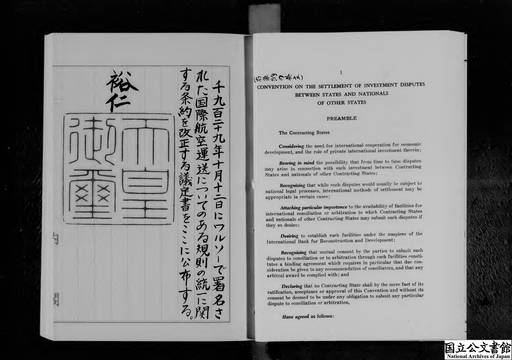 千九百二十九年十月十二日にワルソーで署名さ
れた国際航空運送についてのある規則の統一に関
する条約を改正する議定書をここに公布する。
裕仁
天皇
御璽
1
CONVENTION ON THE SETTLEMENT OF INVESTMENT DISPUTES
BETWEEN STATES AND NATIONALS
OF OTHER STATES
PREAMBLE
The Contracting States
Considering the need for international cooperation for economic
development, and the role of private international investment therein;
Bearing in mind the possibility that from time to time disputes
may arise in connection with such investment between Contracting
States and nationals of other Contracting States;
Recognizing that while such disputes would usually be subject to
national legal processes, international methods of settlement may be
appropriate in certain cases;
Attaching particular importance to the availability of facilities for
international conciliation or arbitration to which Contracting States
and nationals of other Contracting States may submit such disputes if
they so desire;
Desiring to establish such facilities under the auspices of the
International Bank for Reconstruction and Development;
Recognizing that mutual consent by the parties to submit such
disputes to conciliation or to arbitration through such facilities consti-
tutes a binding agreement which requires in particular that due con-
sideration be given to any recommendation of conciliators, and that any
arbitral award be complied with; and
Declaring that no Contracting State shall by the mere fact of its
ratification, acceptance or approval of this Convention and without its
consent be deemed to be under any obligation to submit any particular
dispute to conciliation or arbitration,
Have agreed as follows:
国立公文書館
National Archives of Japan